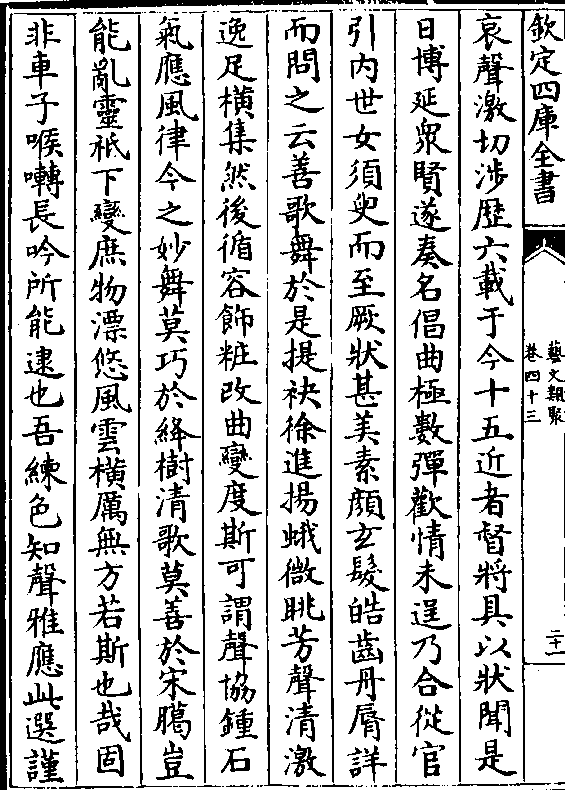 欽定四庫全書
藝文類聚
卷四十三
二十一
哀聲激切涉歴六載于今十五近者督將具以狀聞是
日博延衆賢遂奏名倡曲極數彈歡情未逞乃合從官
引内世女須臾而至厥狀甚美素顔玄髮皓齒丹脣詳
而問之云善歌舞於是提袂徐進揚蛾微眺芳聲清激
逸足横集然後循容飾粧改曲變度斯可謂聲協鍾石
氣應風律今之妙舞莫巧於絳樹清歌莫善於宋臈豈
能亂靈祇下變庶物漂悠風雲横厲無方若斯也哉固
非車子喉囀長吟所能逮也吾練色知聲雅應此選謹